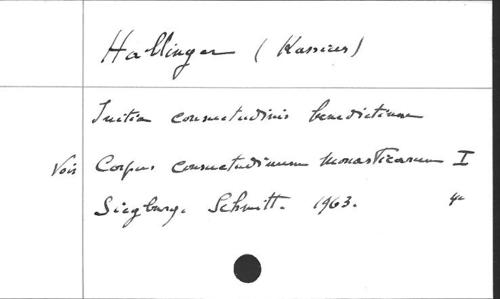 Hallinger (Kassius)
Initia consuetudinis benedictinae
Voir Corpus consuetudinum monasticarum I
Siegburg. Schmitt. 1963. 4°